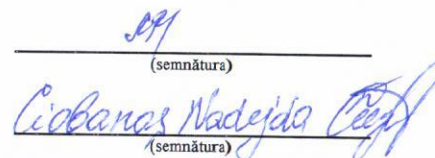 (semnătura)
Ciobanas Nadejda
(semnătura)